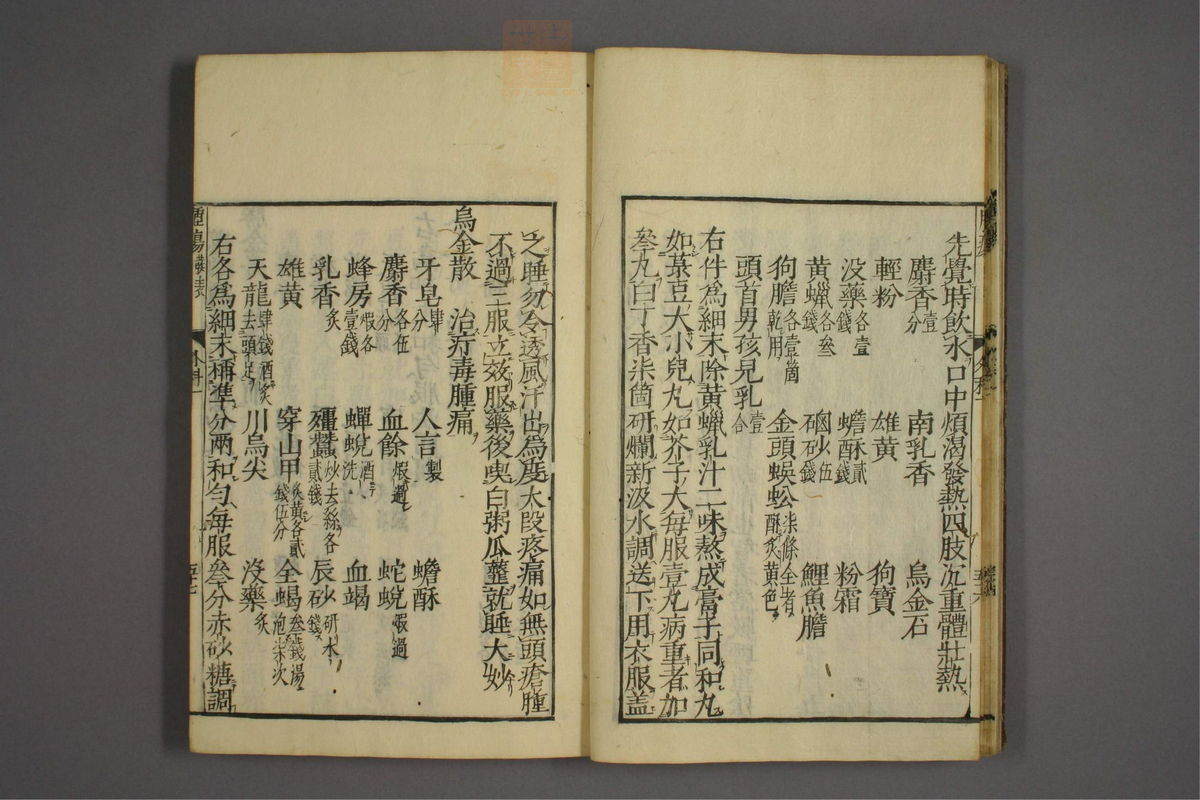 先覺時飲水口中煩渴發熱四肢沉重體壯熱
麝香壹分 南乳香 烏金石
輕粉 雄黃 狗寶
没藥各壹錢 蟾酥貳錢 粉霜
黃蠟各叁錢 硇砂伍錢 鯉魚膽
狗膽各壹箇乾用 金頭蜈蚣柒條全者酥炙黃色
頭首男孩兒乳壹合
右件爲細末除黃蠟乳汁二味熬成膏子同和丸
如菉豆大小兒丸如芥子大每服壹丸病重者加
叁丸白丁香柒箇研爛新汲水調送下用衣服盖
之睡勿令透風汗出爲度大段疼痛如無頭瘡腫
不過三服立效服藥後喫白粥瓜虀就睡大妙
烏金散 治疔毒腫痛
牙皂肆分 人言製 蟾酥
麝香各伍分 血餘煆過 蛇蛻煆過
蜂房煆各壹錢 蟬蛻酒洗 血竭
乳香炙 殭蠶炒去絲各貳錢 辰砂研水錢
雄黃 穿山甲炙黃各貳錢伍分 全蝎叁錢湯泡柒次
天龍肆錢酒炙去頭足 川烏尖 沒藥炙
右各爲細末秤準分兩和勻每服叁分赤砂糖調
外科